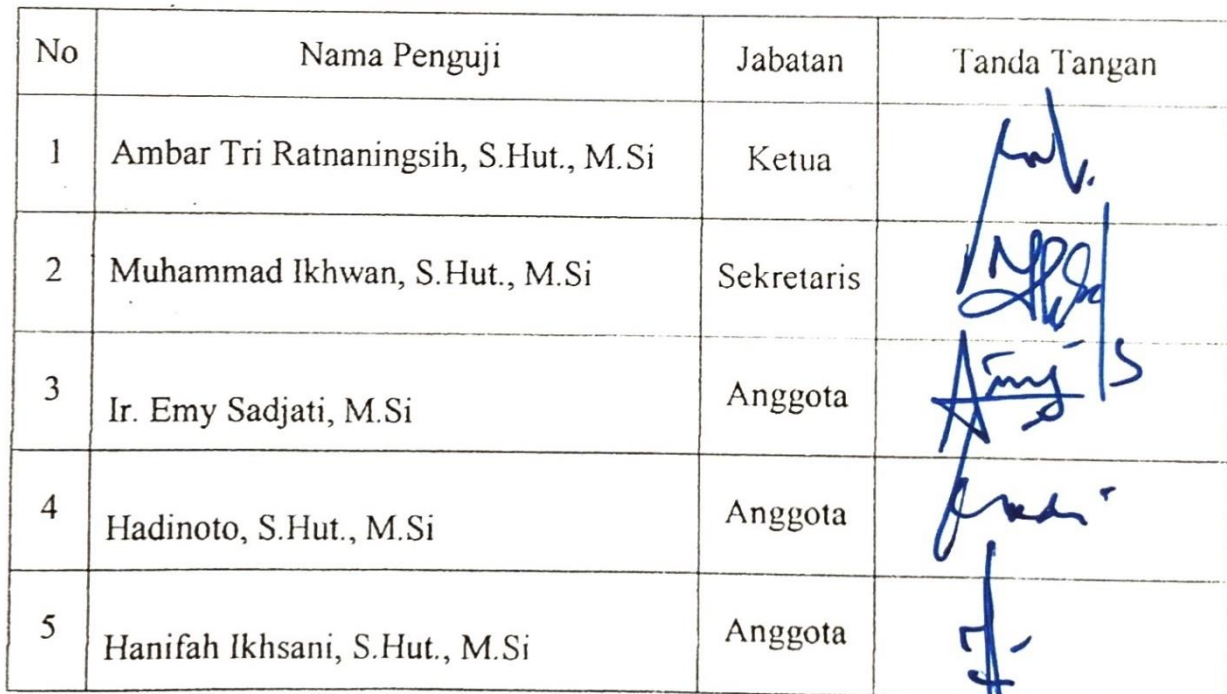 No Nama Penguji Jabatan Tanda Tangan
1 Ambar Tri Ratnaningsih, S.Hut., M.Si Ketua
2 Muhammad Ikhwan, S.Hut., M.Si Sekretaris
3 Ir. Emy Sadjati, M.Si Anggota
4 Hadinoto, S.Hut., M.Si Anggota
5 Hanifah Ikhsani, S.Hut., M.Si Anggota